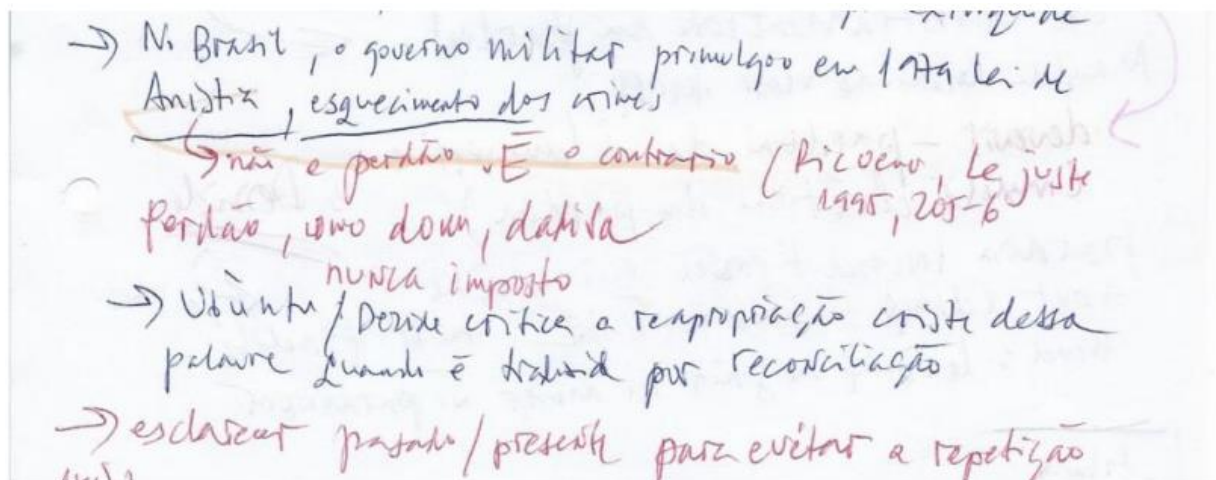 →) No Brasil, o governo militar primulgou em 1979 a lei de
Anistia, esquecimento dos crimes
não e perdão. É o contrario (Ricoeur, Le juste
1995, 205-6
Perdão, como down, dadiva
nunca imposto
→) Ubuntu / Deride critica a reapropriação criste dessa
palavre quando é traduzid por reconciliação
→) esclarecer passado / presente para evitar a repetição